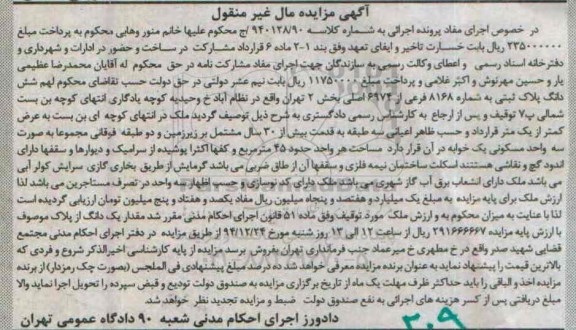 آگهی مزایده مال غیر منقول
در خصوص اجرای مفاد پرونده اجرائی به شماره کلاسه ۹۴۰۱۲۸/۹۰ ج/ محکوم علیها خانم منور وهابی محکوم به پرداخت مبلغ
۲۳۵۰۰۰۰۰۰ ریال بابت خسارت تاخیر و ایفای تعهد وفق بند ۱-۲ ماده ۶ قرارداد مشارکت در ساخت و حضور در ادارات و شهرداری و
دفترخانه اسناد رسمی و اعطای وکالت رسمی به سازندگان جهت اجرای مفاد مشارکت نامه در حق محکوم له آقایان محمدرضا عظیمی
یار و حسین مهرنوش و اکثر غلامی و پرداخت مبلغ ۱۱۷۵۰۰۰۰ ریال بابت نیم عشر دولتی در حق دولت حسب تقاضای محکوم لهم شش
دانگ پلاک ثبتی به شماره ۸۱۶۸ فرعی از ۶۹۲۷ اصلی بخش ۲ تهران واقع در نظام آباد خ وحیدیه کوچه یادگاری انتهای کوچه بن بست
شمالی پ۷ توقیف و پس از ارجاع به کارشناس رسمی دادگستری به شرح ذیل توصیف گردید ملک در انتهای کوچه ای بن بست به عرض
کمتر از یک متر قرارداد و حسب ظاهر اعیانی سه طبقه به قدمت بیش از ۳۰ سال مشتمل بر زیرزمین و دو طبقه فوقانی مجموعا به صورت
سه واحد مسکونی یک خوابه در آن قرار دارد مساحت هر واحد حدود ۴۵ مترمربع و کفها اکثرا پوشیده از سرامیک و دیوارها و سقفها دارای
اندود گچ و نقاشی هستند اسکلت ساختمان نیمه فلزی و سقفها آن از طاق ضربی می باشد گرمایش از طریق بخاری گازی سرایش کولر آبی
می باشد ملک دارای انشعاب برق آب گاز شهری می باشد ملک دارای کد نوسازی و حسب اظهار سه واحد در تصرف مستاجرین می باشد لذا
ارزش ملک برای پایه مزایده به مبلغ یک میلیارد و هفتصد و پنجاه میلیون ریال مفاد یکصد و هفتاد و پنج میلیون تومان ارزیابی گردیده است
لذا با عنایت به میزان محکوم به و ارزش ملک مورد توقیف وفق ماده ۵۱ قانون اجرای احکام مدنی مقرر شد مقدار یک دانگ از پلاک موصوف
با ارزش پایه مزایده ۲۹۱۶۶۶۶۶۷ ریال از ساعت ۱۲ الی ۱۳ روز شنبه مورخ ۹۴/۱۲/۲۴ از طریق مزایده در دفتر اجرای احکام مدنی مجتمع
قضایی شهید صدر واقع در خ مطهری خ میرعماد جنب فرمانداری تهران بفروش برسد مزایده از پایه کارشناسی اخیرالذکر شروع و فردی که
بالاترین قیمت را پیشنهاد نماید به عنوان برنده مزایده معرفی خواهد شد ده درصد مبلغ پیشنهادی فی المجلس (بصورت چک رمزدار) از برنده
مزایده اخذ و الباقی را باید حداکثر ظرف مهلت یک ماه از تاریخ برگزاری مزایده به صندوق دولت تودیع و قبض سپرده را تحویل اجرا نماید والا
مبلغ دریافتی پس از کسر هزینه های اجرائی به نفع صندوق دولت ضبط و مزایده تجدید نظر خواهد شد.
دادورز اجرای احکام مدنی شعبه ۹۰ دادگاه عمومی تهران
۲۰۹